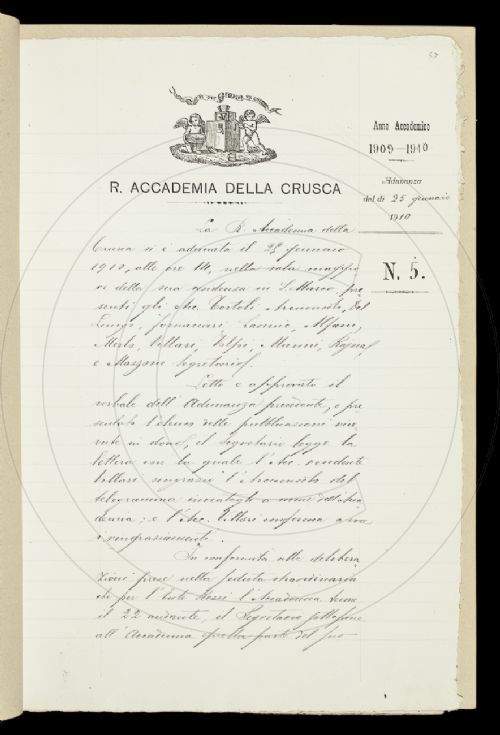 R. ACCADEMIA DELLA CRUSCA
Anno Accademico
1909-1910
Adunanza
del dì 25 gennaio
1910
N. 5.
La R. Accademia della
Crusca si è adunata il 25 gennaio
1910, alle ore 14, nella sala maggio
re della sua residenza in S. Marco, pre
senti gli Acc. Tortoli, Arciconsolo, Del
Lungo, Fornaciari, Alfani,
Villari, Volpi, Rajna,
e Mazzoni Segretario.
Letto e approvato il
verbale dell'Adunanza precedente, e pre
sentato l'elenco delle pubblicazioni rice
vute in dono, il Segretario legge la
lettera con la quale l'Acc. residente
Villari ringrazia l'Arciconsolo del
telegramma inviatogli a nome dell'Acca
demia; e l'Acc. Villari conferma a voce
il ringraziamento.
In conformità alle delibera
zioni prese nella seduta straordinaria
che per l'Ente Rezzi l'Accademia tenne
il 22 andante, il Segretario sottopone
all'Accademia quella parte del suo